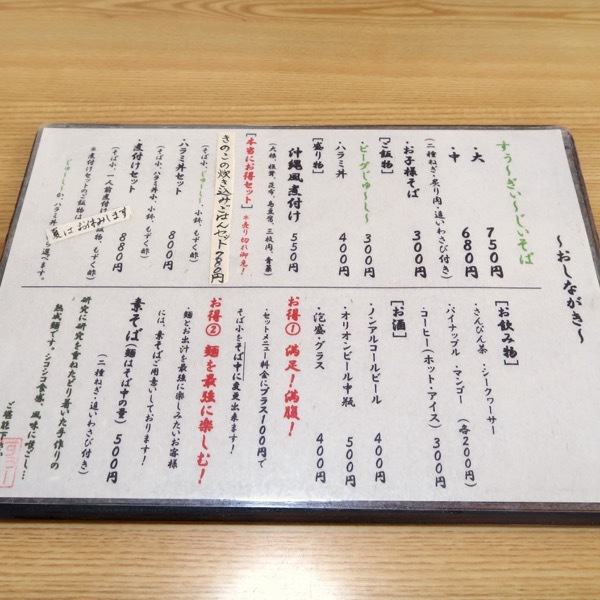 ～おしながき～
すぅ～ぎぃ～じぃそば
・大 750円
・中 680円
(二種ねぎ・炙り肉・追いわさび付き)
・お子様そば 300円
[ご飯物]
・ピーグじゅ～し～ 300円
・ハラミ丼 400円
[盛り物]
沖縄風煮付け 550円
(大根、椎茸、昆布、島豆腐、三枚肉、青菜)
[本当にお得セット] ※売り切れ御免!
きのこの炊き込みごはんセット 780円
(そば小、じゅ～し～、小鉢、もずく酢)
・ハラミ丼セット 800円
(そば小、ハラミ丼小、小鉢、もずく酢)
・煮付けセット 880円
(そば小、一人前煮付け、ご飯物、もずく酢)
※煮付けセットのご飯物は
じゅ～し～か、ハラミ丼
選べます。
夏はお休みします
[お飲み物]
・さんぴん茶 ・シークワーサー
・パイナップル ・マンゴー (各200円)
・コーヒー(ホット・アイス) 300円
[お酒]
・ノンアルコールビール 400円
・オリオンビール中瓶 500円
・泡盛・グラス 400円
お得① 満足!満腹!
・セットメニュー料金にプラス100円で
そば小をそば中に変更出来ます!
お得② 麺を最強に楽しむ!
・麺とお出汁を最強に楽しみたいお客様
には、素そばご用意しております!
素そば(麺はそば中の量) 500円
(二種ねぎ・追いわさび付き)
研究に研究を重ねたどり着いた手作りの
熟成麺です。シコシコ食感、風味に喉ごし…